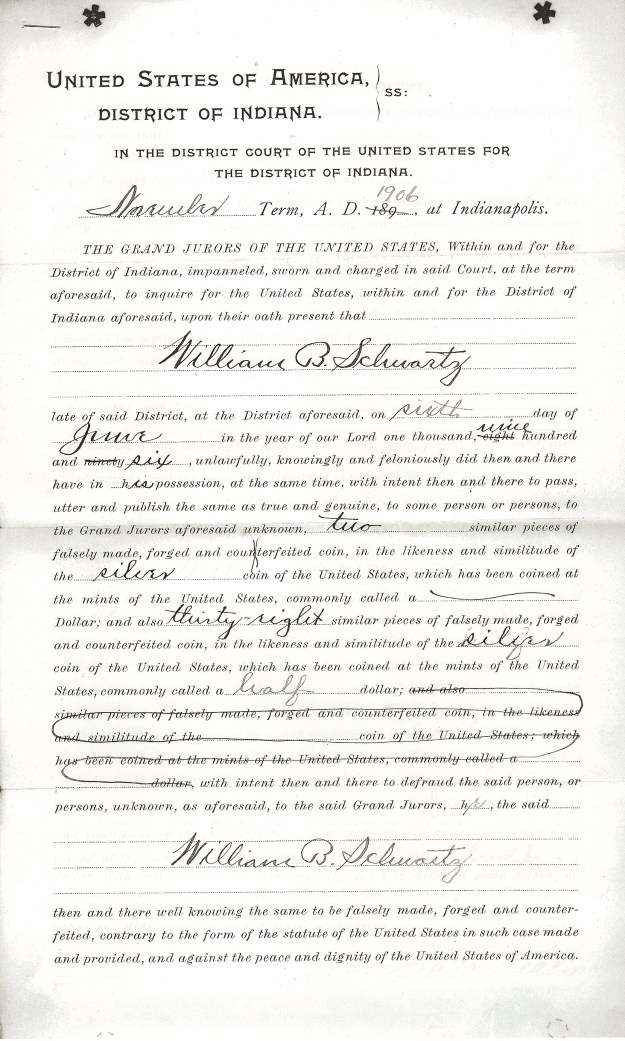 UNITED STATES OF AMERICA, } SS:
DISTRICT OF INDIANA.
IN THE DISTRICT COURT OF THE UNITED STATES FOR
THE DISTRICT OF INDIANA.
1906
November Term, A. D. 189 , at Indianapolis.
THE GRAND JURORS OF THE UNITED STATES, Within and for the
District of Indiana, impanneled, sworn and charged in said Court, at the term
aforesaid, to inquire for the United States, within and for the District of
Indiana aforesaid, upon their oath present that
William B. Schwartz
late of said District, at the District aforesaid, on sixth day of
June in the year of our Lord one thousand, eight nine hundred
and ninety six, unlawfully, knowingly and feloniously did then and there
have in his possession, at the same time, with intent then and there to pass,
utter and publish the same as true and genuine, to some person or persons, to
the Grand Jurors aforesaid unknown, two similar pieces of
falsely made, forged and counterfeited coin, in the likeness and similitude of
the silver coin of the United States, which has been coined at
the mints of the United States, commonly called a
Dollar; and also thirty-eight similar pieces of falsely made, forged
and counterfeited coin, in the likeness and similitude of the silver
coin of the United States, which has been coined at the mints of the United
States, commonly called a half dollar; and also
similar pieces of falsely made, forged and counterfeited coin, in the likeness
and similitude of the coin of the United States; which
has been coined at the mints of the United States, commonly called a
dollar, with intent then and there to defraud the said person, or
persons, unknown, as aforesaid, to the said Grand Jurors, he, the said
William B. Schwartz
then and there well knowing the same to be falsely made, forged and counter-
feited, contrary to the form of the statute of the United States in such case made
and provided, and against the peace and dignity of the United States of America.